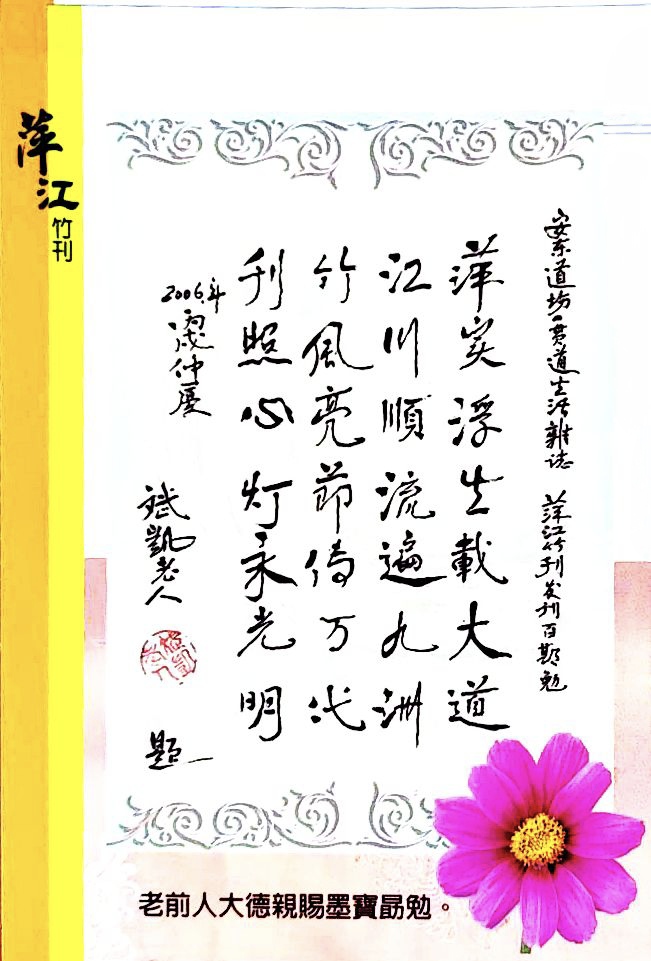 萍江
竹刊
安东道场一贯道生活雜誌 萍江竹刊发刊百期勉
萍实浮生載大道
江川順流遍九洲
竹風亮節传万代
刊照心灯永光明
2006年
丙戌仲夏
斌凱老人
題
老前人大德親賜墨寶勗勉。